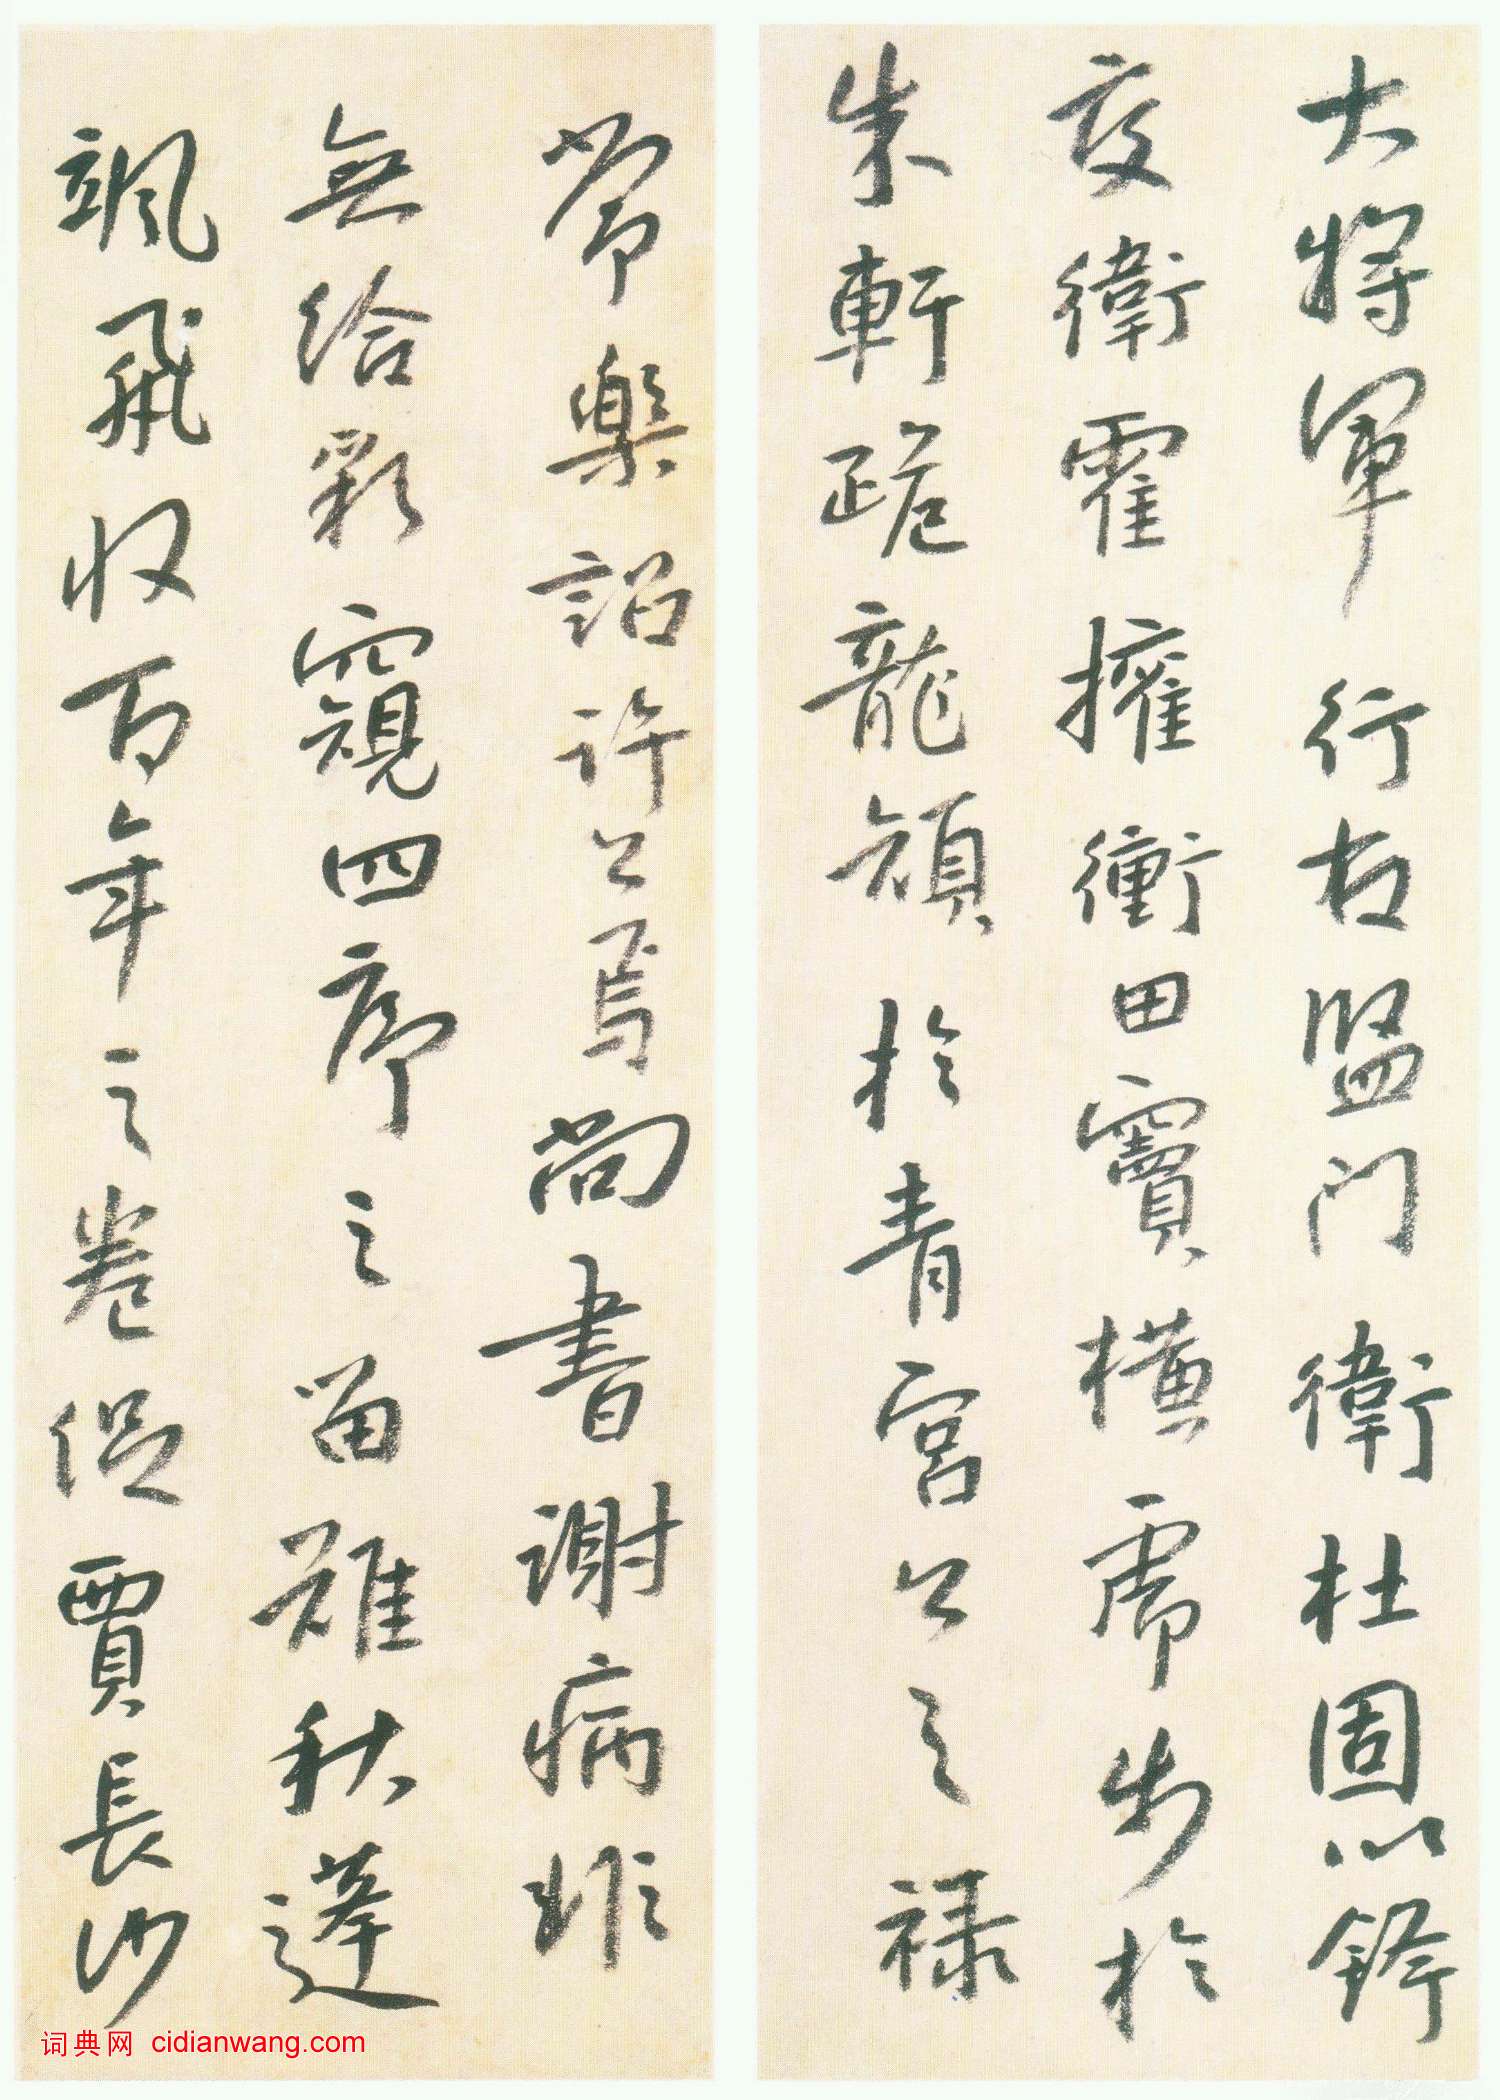 大將軍行右監門衛杜固以鋒
交衛霍擁衝田竇橫虎步於
朱軒跪龍頷於青宮公之祿
常樂詔許公焉尚書謝病非
無給彩窺四序之留難秋蓬
颯飛收百年之卷促賈長沙
词典网 cidianwang.com